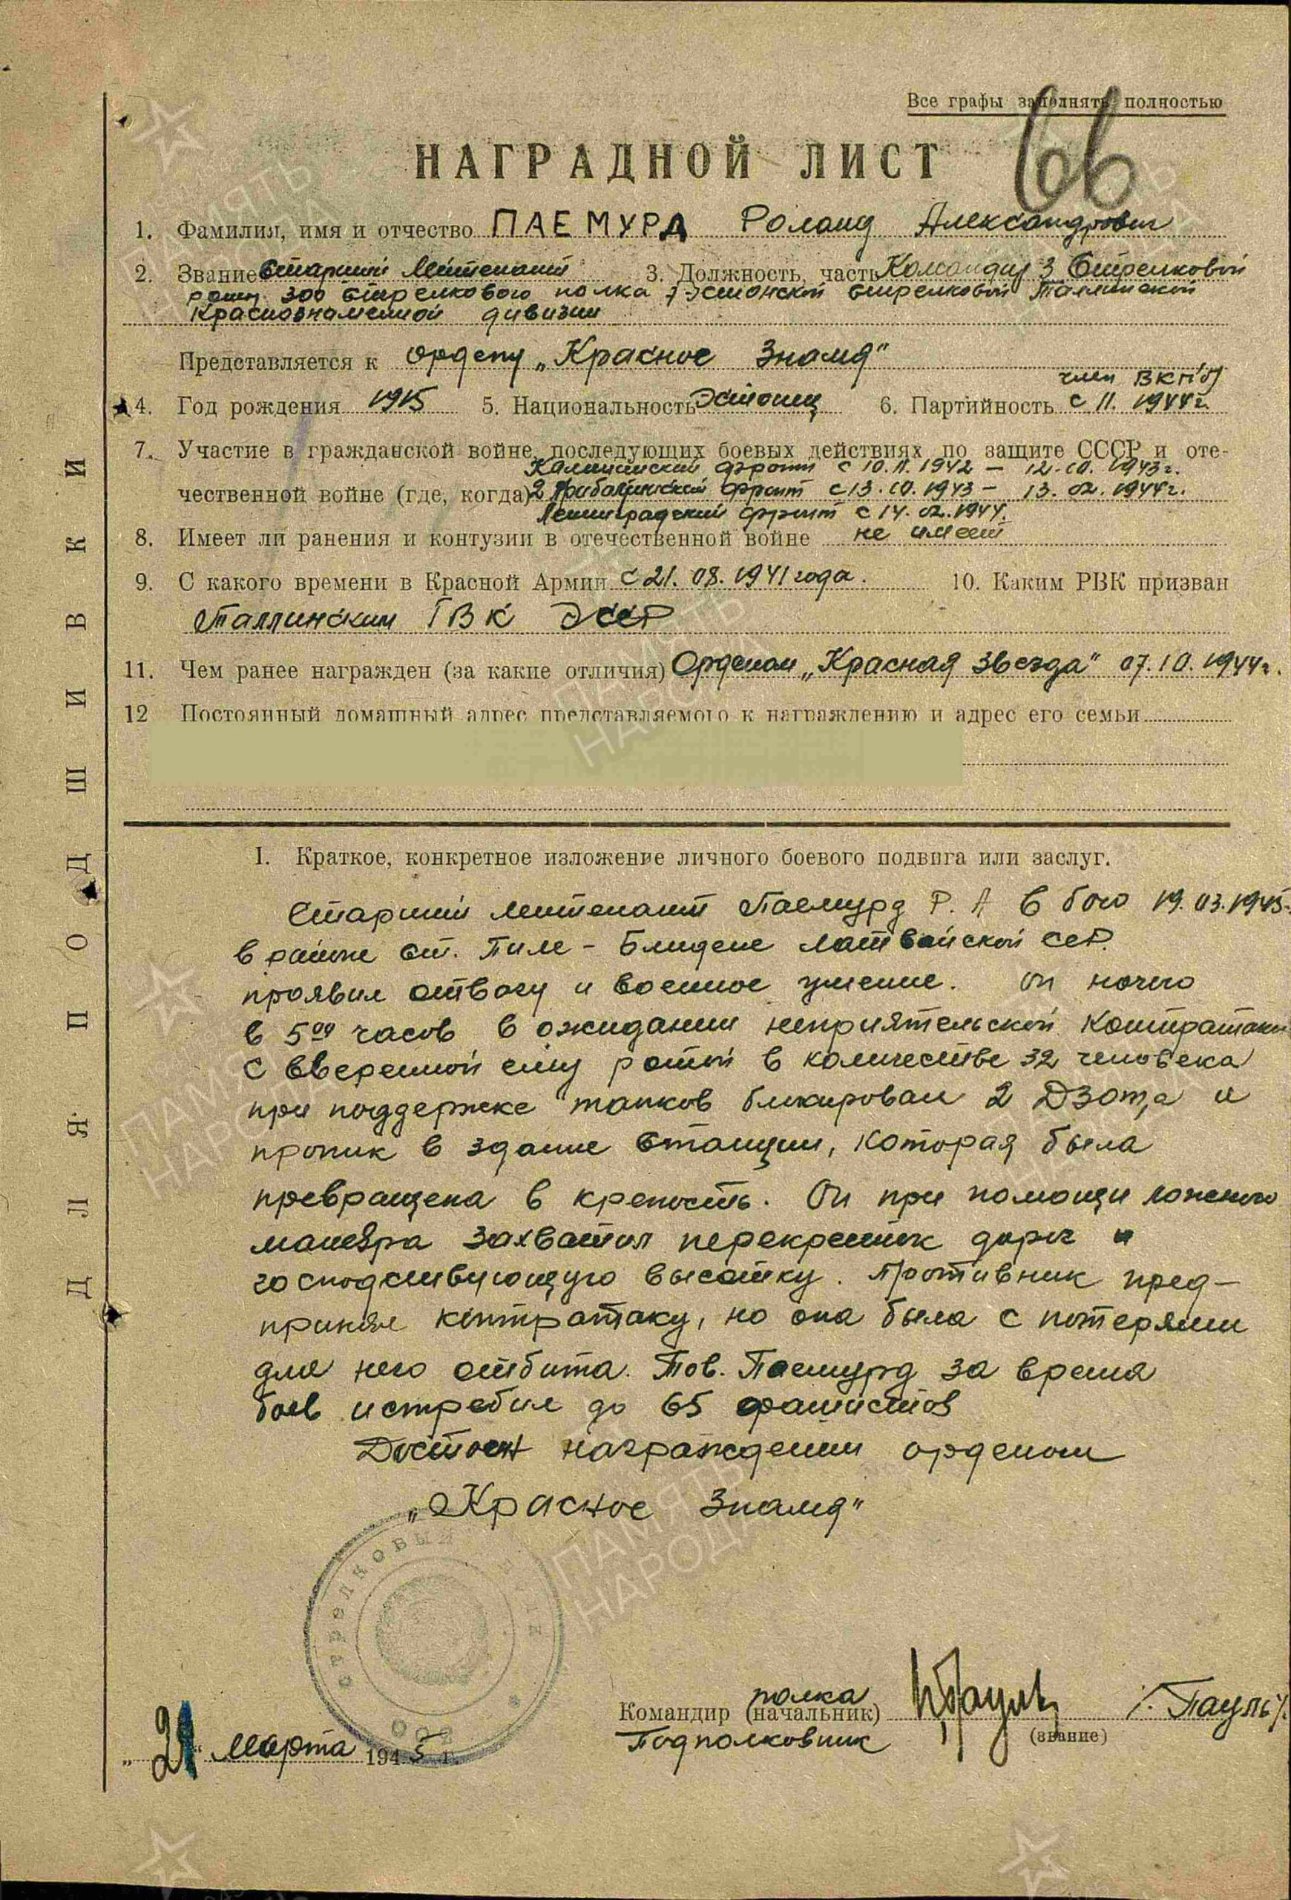 Все графы заполнять полностью
НАГРАДНОЙ ЛИСТ
1. Фамилия, имя и отчество ПАЕМУРД Роланд Александрович
2. Звание Старший Лейтенант 3. Должность, часть Командир 3 Стрелковой
роты 300 Стрелкового полка 7 Эстонской Стрелковой Таллинской
Краснознаменной дивизии
Представляется к ордену „Красное Знамя"
член ВКП(б)
4. Год рождения 1915 5. Национальность Эстонец 6. Партийность с 11. 1944 г.
7. Участие в гражданской войне, последующих боевых действиях по защите СССР и оте-
Калининский фронт с 10.11.1942 – 12.10.1943 г.
чественной войне (где, когда) 2 Прибалтийский фронт с 13.10.1943 – 13.02.1944 г.
Ленинградский фронт с 14.02.1944.
8. Имеет ли ранения и контузии в отечественной войне не имеет
9. С какого времени в Красной Армии с 21. 08. 1941 года. 10. Каким РВК призван
Таллинским ГВК ЭССР
11. Чем ранее награжден (за какие отличия) Орденом „Красная Звезда" 07.10.1944 г.
12 Постоянный домашный адрес представляемого к награждению и адрес его семьи
ДЛЯ ПОДШИВКИ
I. Краткое, конкретное изложение личного боевого подвига или заслуг.
Старший лейтенант Паемурд Р. А в бою 19.03.1945
в районе ст. Пиле – Блидене Латвийской ССР.
проявил отвагу и военное умение. Он ночью
в 5 00 часов в ожидании неприятельской контратаки
с вверенной ему ротой в количестве 32 человека
при поддержке танков блокировал 2 ДЗОТ,а и
проник в здание станции, которая была
превращена в крепость. Он при помощи ложного
маневра захватил перекресток дорог и
господствующую высотку. Противник пред-
принял контратаку, но она была с потерями
для него отбита. Тов. Паемурд за время
боев истребил до 65 фашистов
Достоен награждении орденом
„Красное Знамя"
СТРЕЛКОВЫЙ ПОЛК
300
полка
Командир (начальник) /. Пауль/.
Подполковник (звание)
„ 21 " марта 1945 г.
ПАМЯТЬ НАРОДА